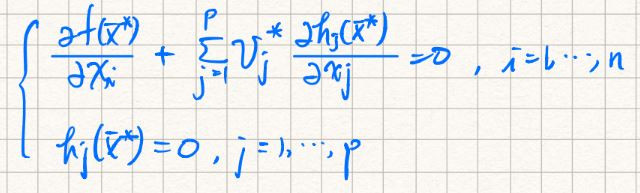 ∂f(x̄*)/∂xᵢ + Σⱼ₌₁ᵖ vⱼ* ∂hⱼ(x̄*)/∂xⱼ = 0 , i=1,⋯,n
hⱼ(x̄*) = 0 , j=1,⋯,p